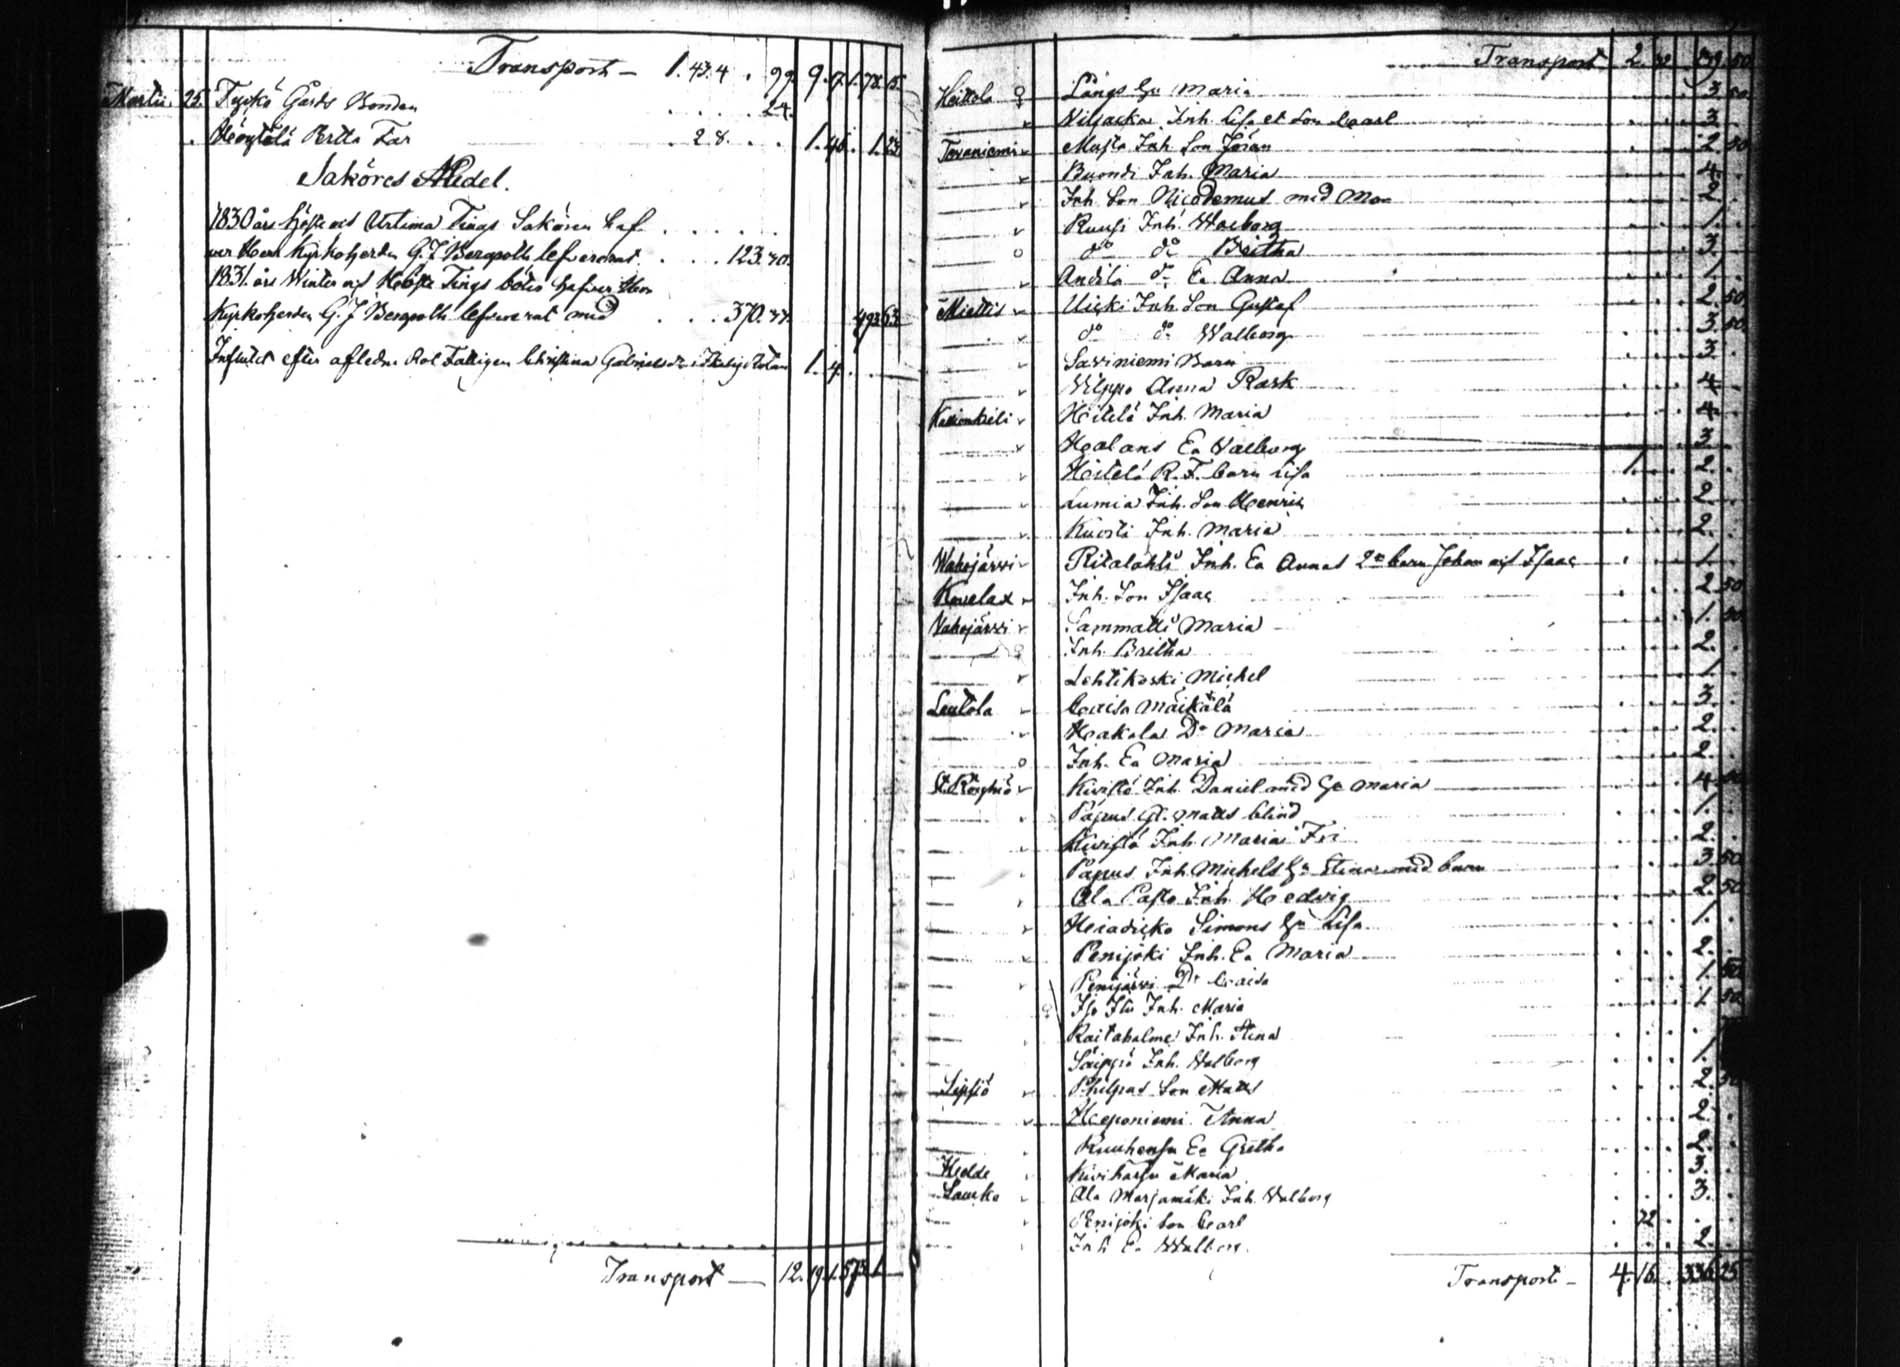 Transport — 1.43.4 . 99. 9. 9. 1. 78. 15.
Martii. 25. Tyykö Gårds Bonden . . . . 24.
Höytölä Britta Far . 28. . . 1. 46. . 1. 23.
Saköres Medel.
1830 års Höste och Urtima Tings Saköres haf-
ver Herr Kyrkoherden G. J. Bergroth lefvererat . . . 123.30.
1831 års Winter och Höste Tings böter hafver Herr
Kyrkoherden G. J. Bergroth lefvererat med . . . 370.33. 493 63
Influtit efter afledne Rot Fattigen Christina Gabrielsdr i Rotan 1. 4.
Transport — 12. 19. 1. 573. 1.
Transport 2. 32 239. 50
Heittola Långs Hu Maria 3 50
Viljacka Inh. Lisa et Son Carl 3
Tavaniemi Musta Inh. Son Jöran 2 50
Buondi Inh. Maria 4
Inh. Son Nicodemus med Mor 2
Ruusi Inh. Walborg 1
do do Britha 3
Andila do Ea Anna 1
Miettis Uicki Inh. Son Gustaf 2 50
do do Walborg 3 50
Saviniemi Barn 3
Vilppo Anna Rask 4
Heitelä Inh. Maria 4
Halans Ea Valborg 3
Heitelä R. F. barn Lisa 1. 2
Lumia Inh. Son Henric 2
Kuosti Inh. Maria 2
Wahojärvi Ritalahti Inh. Ea Annas 2ne barn Johan och Isaac 1
Kovelax Inh. Son Isaac 2 50
Vahojärvi Sammatti Maria 1. 50
Inh. Britha 2
Lehtikoski Michel 1
Leutola Caisa Mäikälä 3
Hakola Do Maria 2
Inh. Ea Maria 2
Kivistö Inh. Daniel med Hu Maria 4
Pappus Gl. Matts blind 1
Kivistö Inh. Maria Fri 2
Pappus Inh. Michels Hu Stina med barn 3 50
Ala Pasto Inh. Hedvig 2 50
Simons Hu Lisa 1
Penijoki Inh. Ea Maria 2
Penijärvi Do Caisa 1. 50
Iso Ilu Inh. Maria 1 50
Raitahalme Inh. Stina
Säippiö Inh. Valborg 1
Sipsiö Philpus Son Matts 2
Heponiemi Anna 2
Ruuhensu Ea Gretha 2
Hedde Kiviharju Maria 3
Laurko Ala Marjamäki Inh. Valborg 3
Penijoki Son Carl 32
Inh. Ea Walborg 2
Transport — 4. 16. 336. 25